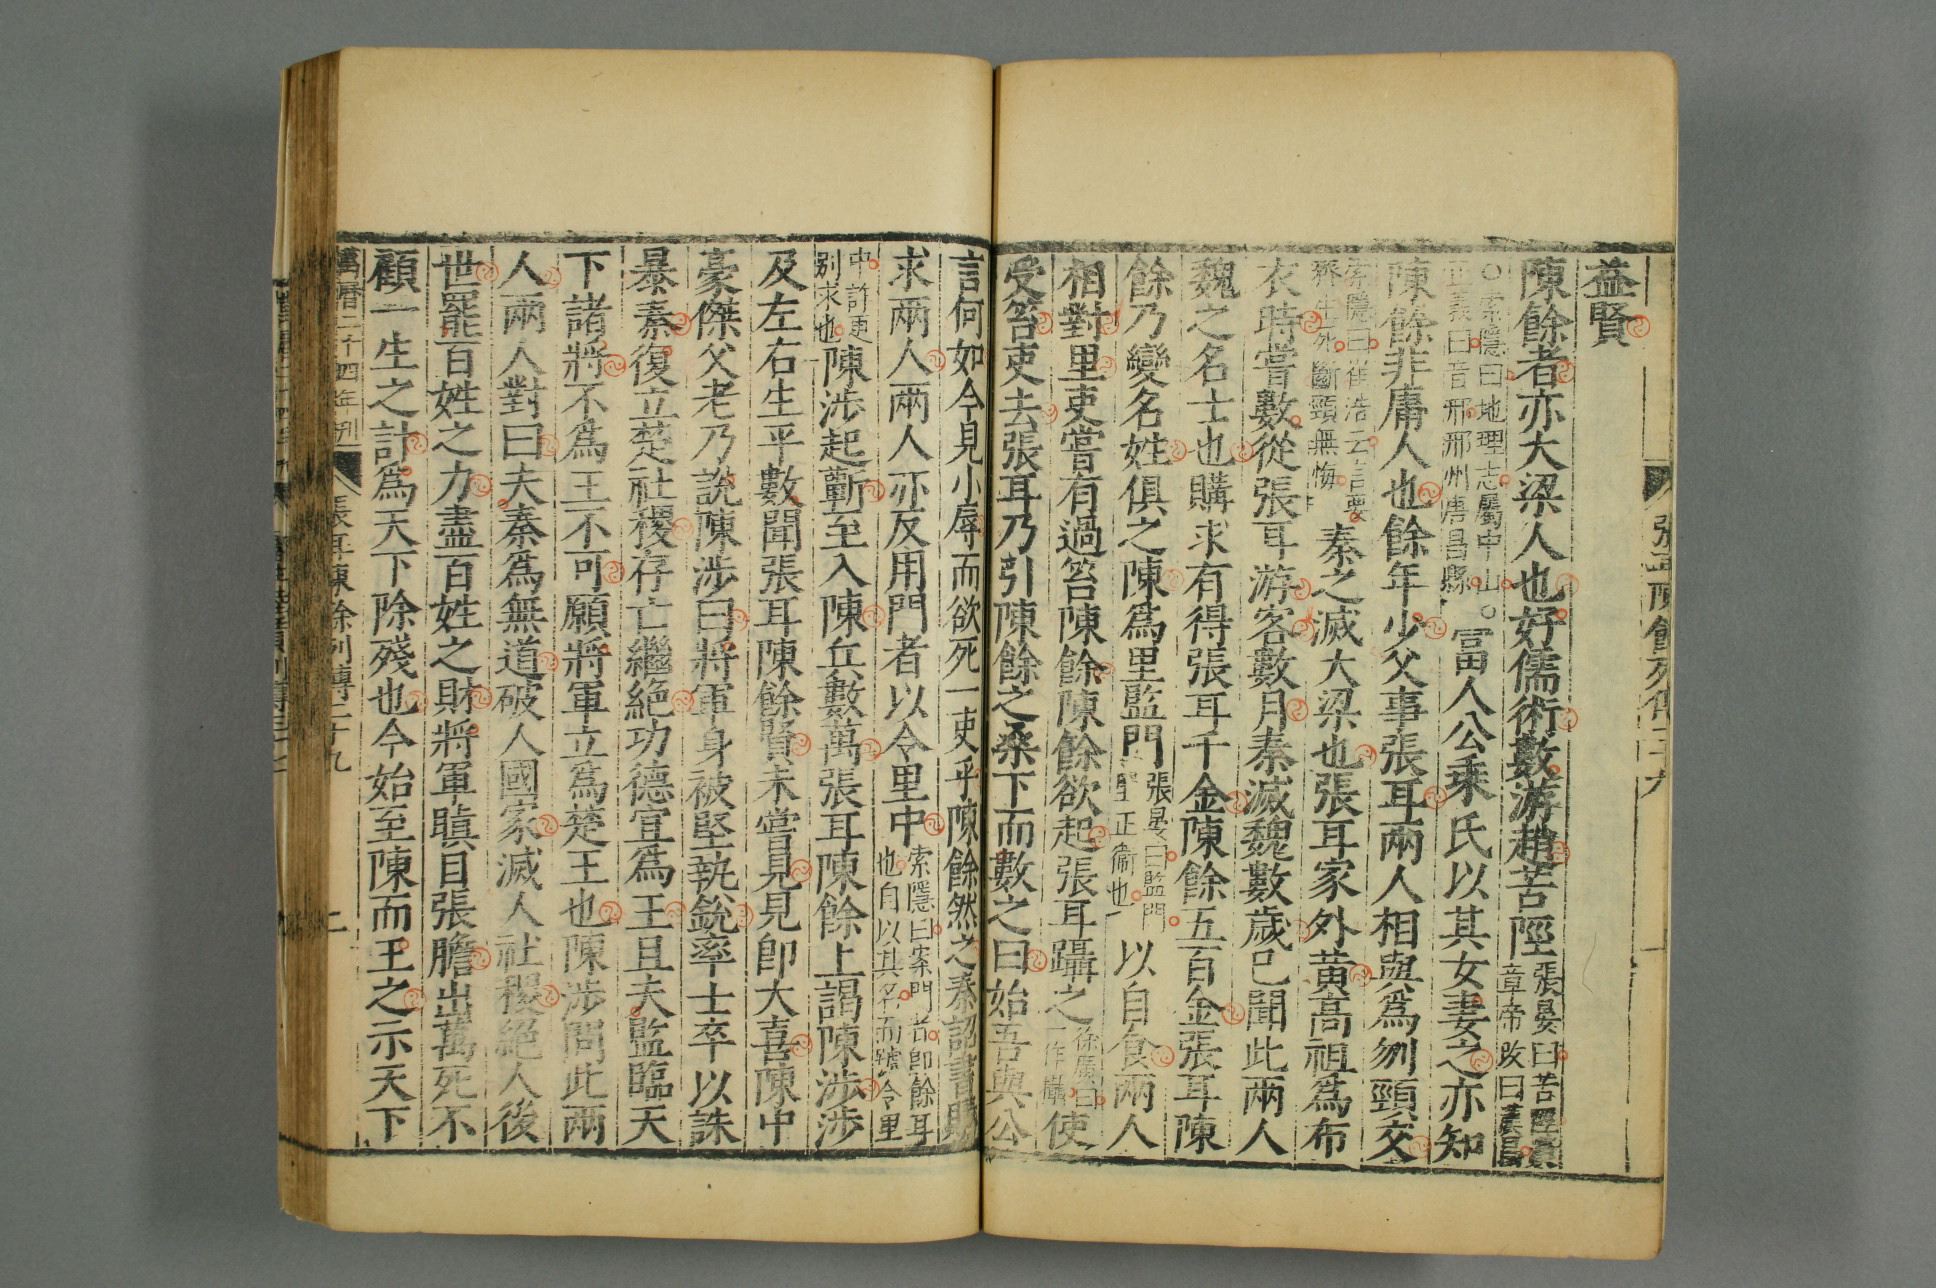 益賢
陳餘者亦大梁人也好儒術數游趙苦陘張晏曰苦陘章帝改曰漢昌
○索隱曰地理志屬中山○正義曰音邢邢州唐昌縣富人公乘氏以其女妻之亦知
陳餘非庸人也餘年少父事張耳兩人相與爲刎頸交
索隱曰崔浩云言要齊生死斷頸無悔秦之滅大梁也張耳家外黃高祖爲布
衣時嘗數從張耳游客數月秦滅魏數歲已聞此兩人
魏之名士也購求有得張耳千金陳餘五百金張耳陳
餘乃變名姓俱之陳爲里監門張晏曰監門里正衞也以自食兩人
相對里吏嘗有過笞陳餘陳餘欲起張耳躡之徐廣曰一作攝使
受笞吏去張耳乃引陳餘之桑下而數之曰始吾與公
言何如今見小辱而欲死一吏乎陳餘然之秦詔書購
求兩人兩人亦反用門者以令里中索隱曰案門者卽餘耳也自以其名而號令里
中詐更別求也陳涉起蘄至入陳兵數萬張耳陳餘上謁陳涉涉
及左右生平數聞張耳陳餘賢未嘗見見卽大喜陳中
豪傑父老乃說陳涉曰將軍身被堅執銳率士卒以誅
暴秦復立楚社稷存亡繼絕功德宜爲王且夫監臨天
下諸將不爲王不可願將軍立爲楚王也陳涉問此兩
人兩人對曰夫秦爲無道破人國家滅人社稷絕人後
世罷百姓之力盡百姓之財將軍瞋目張膽出萬死不
顧一生之計爲天下除殘也今始至陳而王之示天下
萬曆二十四年刊 張耳陳餘列傳二十九 二